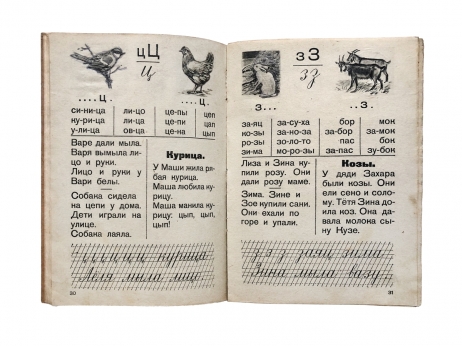 цЦ
ц
....ц.
..ц.
си-ни-ца ли-цо це-пы цеп
ку-ри-ца ли-ца це-пи цап
у-ли-ца ов-ца це-на цып
Варе дали мыла.
Варя вымыла ли-
цо и руки.
Лицо и руки у
Вари белы.
Собака сидела
на цепи у дома.
Дети играли на
улице.
Собака лаяла.
Курица.
У Маши жила ря-
бая курица.
Маша любила ку-
рицу.
Маша манила ку-
рицу: цып, цып,
цып!
курица
Леля мыла лицо.
30
зЗ
зз
з...
..з.
за-яц за-су-ха бор мок
ко-зы за-но-за за-бор за-мок
ро-зы по-ло-зы пас бы
зи-ма мо-ро-зы за-пас зу-бок
Лиза и Зина ку-
пили розу. Они
дали розу маме.
Зима. Зине и
Зое купили сани.
Они ехали по
горе и упали.
Козы.
У дяди Захара
были козы. Они
ели сено и соло-
му. Тётя Зина до-
ила коз. Она да-
вала молока сы-
ну Кузе.
З з з заяц зима
Зина мыла вазу.
31